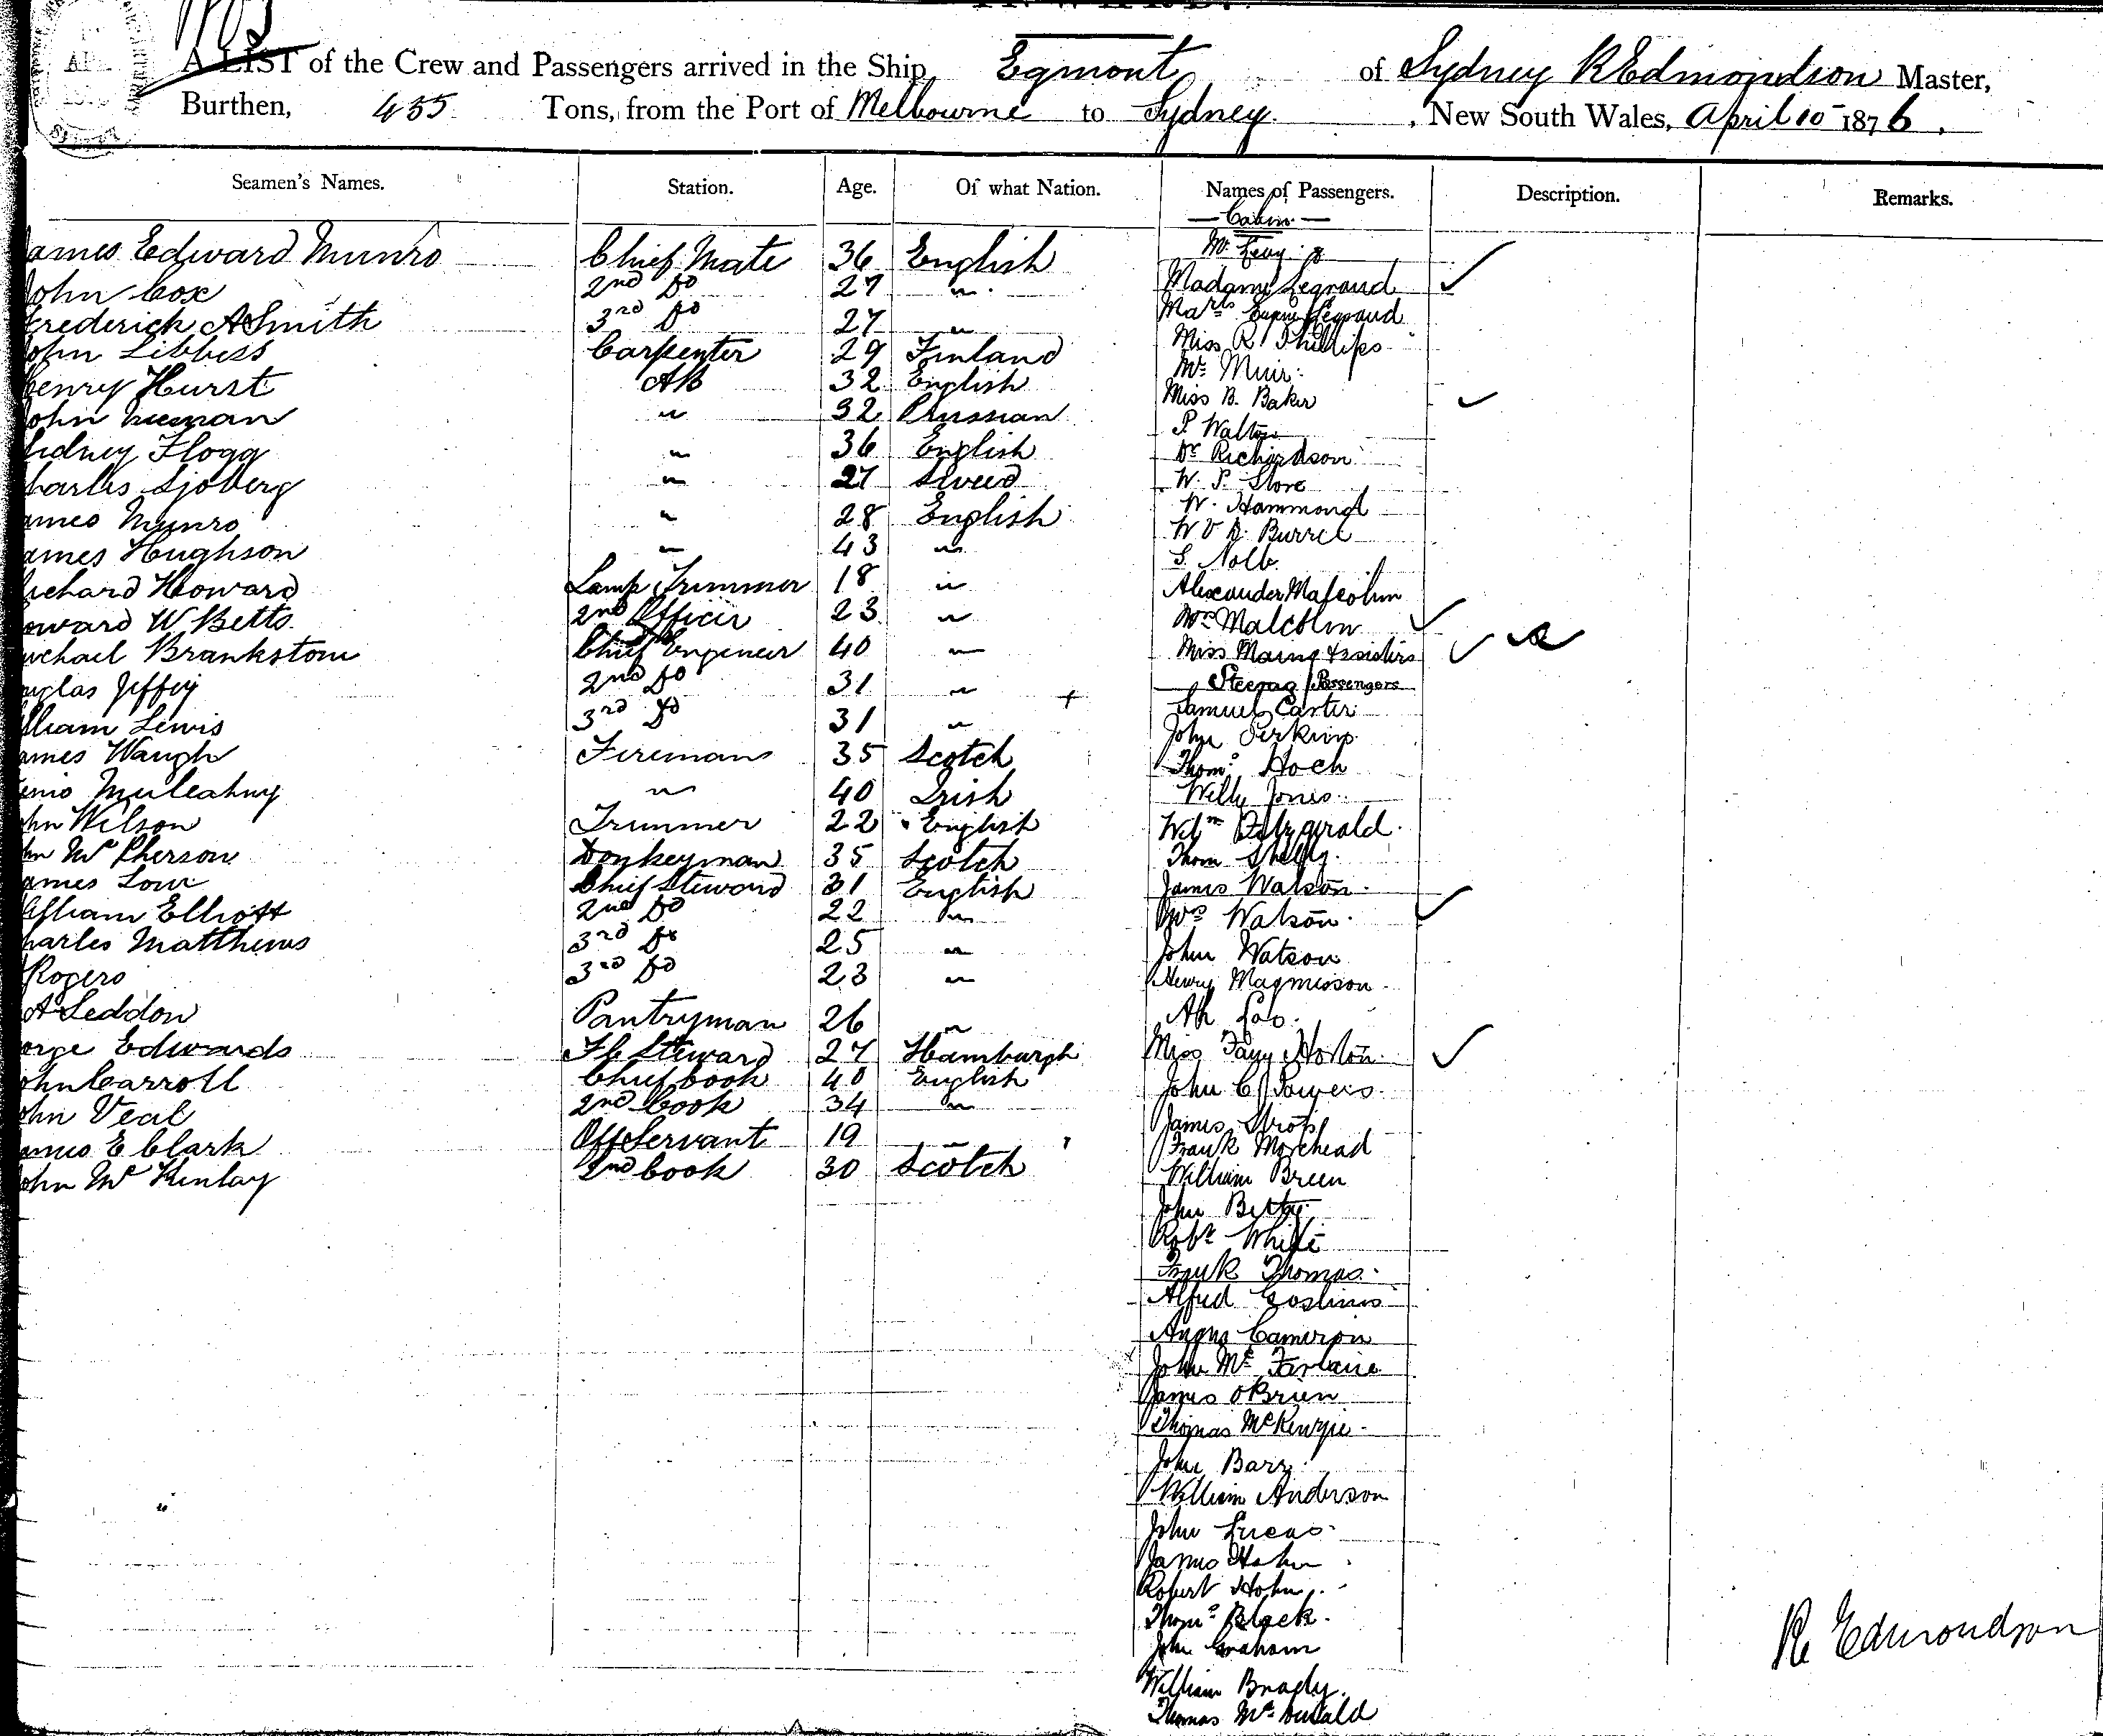 A LIST of the Crew and Passengers arrived in the Ship, Egmont of Sydney R Edmondson Master,
Burthen, 455 Tons, from the Port of Melbourne to Sydney, New South Wales, April 10 1876.
Seamen's Names. Station. Age. Of what Nation. Names of Passengers. Description. Remarks.
Cabin
ames Edward Munro Chief Mate 36 English Mr Levy
John Cox 2nd Do 27 " Madame Legrand ✓
Frederick A Smith 3rd Do 27 " Legrand
John Libbess Carpenter 29 Finland Miss R Phillips
Henry Hurst AB 32 English Mr Muir
John " 32 Prussian Miss B. Baker ✓
Sidney Flogg " 36 English P. Walton
Charles Sjoberg " 27 Sweed Dr Richardson
W. P. Stone
ames Munro " 28 English W. Hammond
ames Hughson " 43 " W V D. Burrel
S. Nolb.
Richard Howard Lamp Trimmer 18 " Alexander Malcolm
oward W Betts 2nd Officer 23 " Mrs Malcolm ✓
ichael Brankstone Chief Engineer 40 " Miss & sisters ✓
ouglas Jeffery 2nd Do 31 " Steerag Passengers
Samuel Carter
illiam Lewis 3rd Do 31 " John Perkins
ames Waugh Fireman 35 Scotch Thoms Hoch
enis Muleahny " 40 Irish Willy Jones
ohn Wilson Trimmer 22 English Wilm Fitzgerald
hn McPherson Donkeyman 35 Scotch Thom Shelly
ames Low Chief Steward 31 English James Watson
William Elliott 2nd Do 22 " Mrs Watson ✓
harles Matthews 3rd Do 25 " John Watson
Rogers 3rd Do 23 " Henry Magnusson
A Seddon Pantryman 26 " Ah
orge Edwards F C Steward 27 Hamburgh Miss Fany Horton ✓
ohn Carroll Chief Cook 40 English John C Sawyers
ohn Veal 2nd Cook 34 " James
ames E Clark Off Servant 19 " Frank Morehead
ohn McKinlay 2nd Cook 30 Scotch William Breen
John Betty
Robt White
Frank Thomas
Alfred Goslins
Angus Cameron
John McFarlane
James OBrien
Thomas McKenzie
John Barr
William Anderson
John Lucas
James Hohn
Robert Hohn
Thoms Black
John Graham
William Brady
Thomas McDonald
R Edmondson